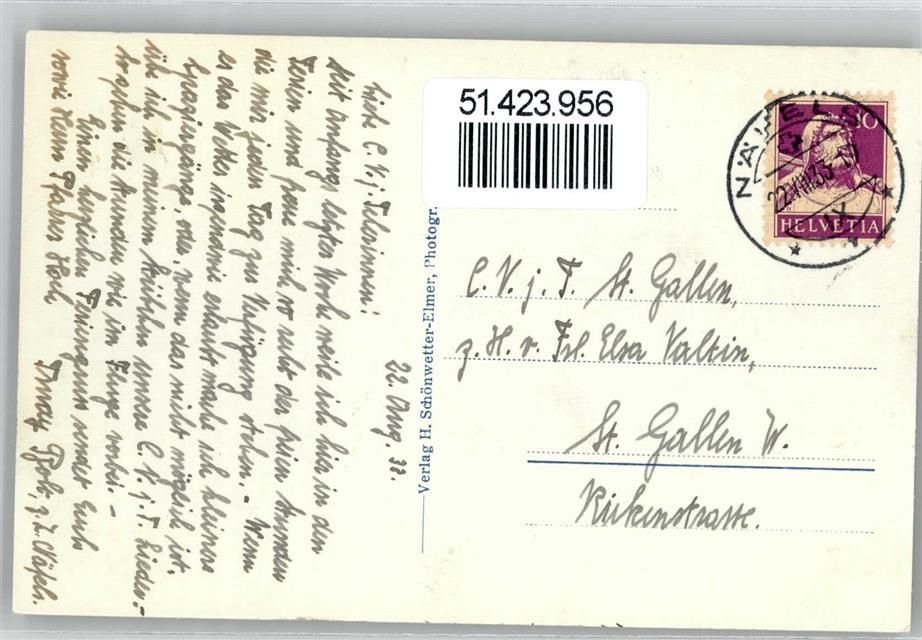 22. Aug. 33.
Liebe C. V. j. Telerinnen!
Seit Anfang letzter Woche weile ich hier in den
Ferien und freue mich so recht der freien Stunden
die mir jeden Tag zur Verfügung stehen. – Wenn
es das Wetter irgendwie erlaubt mache ich kleinere
Spaziergänge, oder, wenn das nicht möglich ist,
übe ich in meinem Stüblein unsere C. V. j. T. Lieder. –
So gehen die Stunden wie im Fluge vorbei. –
Einen herzlichen Feriengruss sendet Euch
sowie Herrn Pfarrer
z. Z. Näfels.
Verlag H. Schönwetter-Elmer, Photogr.
51.423.956
NÄFELS
22.VIII.33
HELVETIA
10
C. V. j. T. St. Gallen,
z. H. v. Frl. Elsa Valtin,
St. Gallen W.
Rickenstrasse.